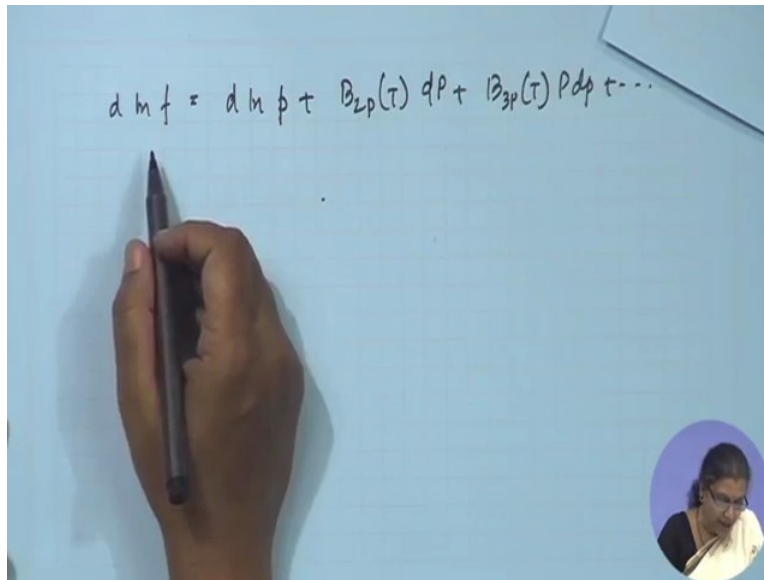 d ln f = d ln p + B₂ₚ(T) dP + B₃ₚ(T) P dp + ---